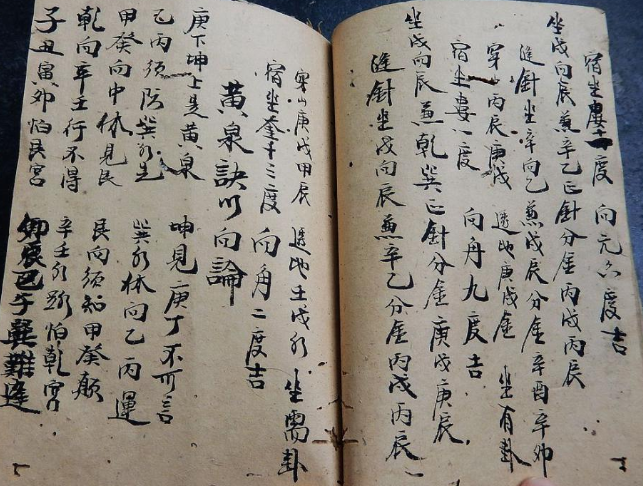 宿坐婁十一度 向元六度吉
坐戌向辰兼辛乙正針分金丙戌丙辰
縫針坐辛向乙兼戌辰分金辛酉辛卯
穿山丙辰庚戌 透地庚戌金 坐有卦
宿坐婁一度 向角九度吉
坐戌向辰兼乾巽正針分金庚戌庚辰
縫針坐戌向辰兼辛乙分金丙戌丙辰
穿山庚戌甲辰 透地土戌水 坐需卦
宿坐奎十三度 向角二度吉
黃泉訣以向論
庚下坤上是黃泉 坤見庚丁不可言
乙丙須防巽水先 巽水休向乙丙運
甲癸向中休見艮 艮向須知甲癸顛
乾向辛壬行不得 辛壬水路怕乾宮
子丑寅卯怕艮宮 卯辰巳午巽難逢